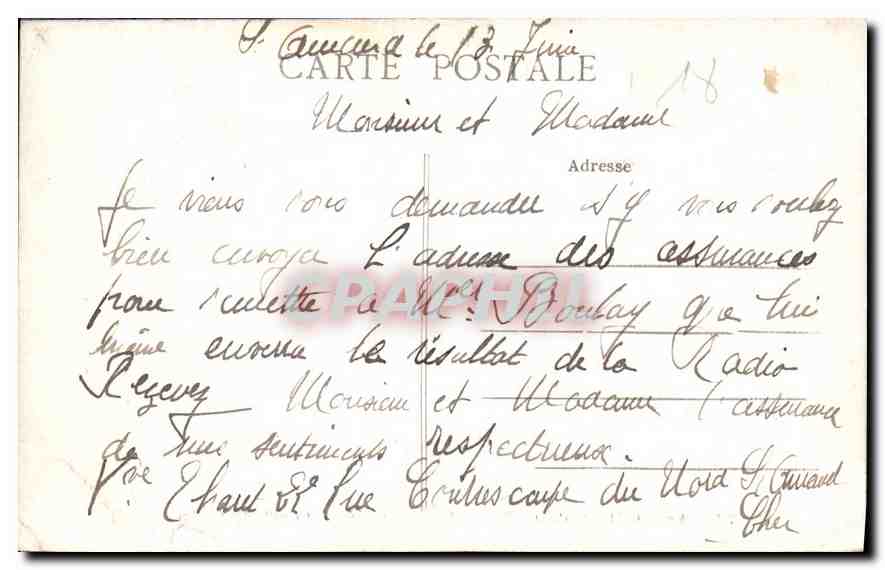 St Amand le 13 Juin
CARTE POSTALE
18
Monsieur et Madame
Adresse
Je viens vous demander s'y vous voulez
bien envoyer l'adresse des assurances
pour remettre a M. Boulay qe lui
même enverra le résultat de la Radio
Recevez Monsieur et Madame l'assurance
de mes sentiments respectueux.
Vve 22 Rue Contrescarpe du Nord St Amand
Cher
CPAPHIL